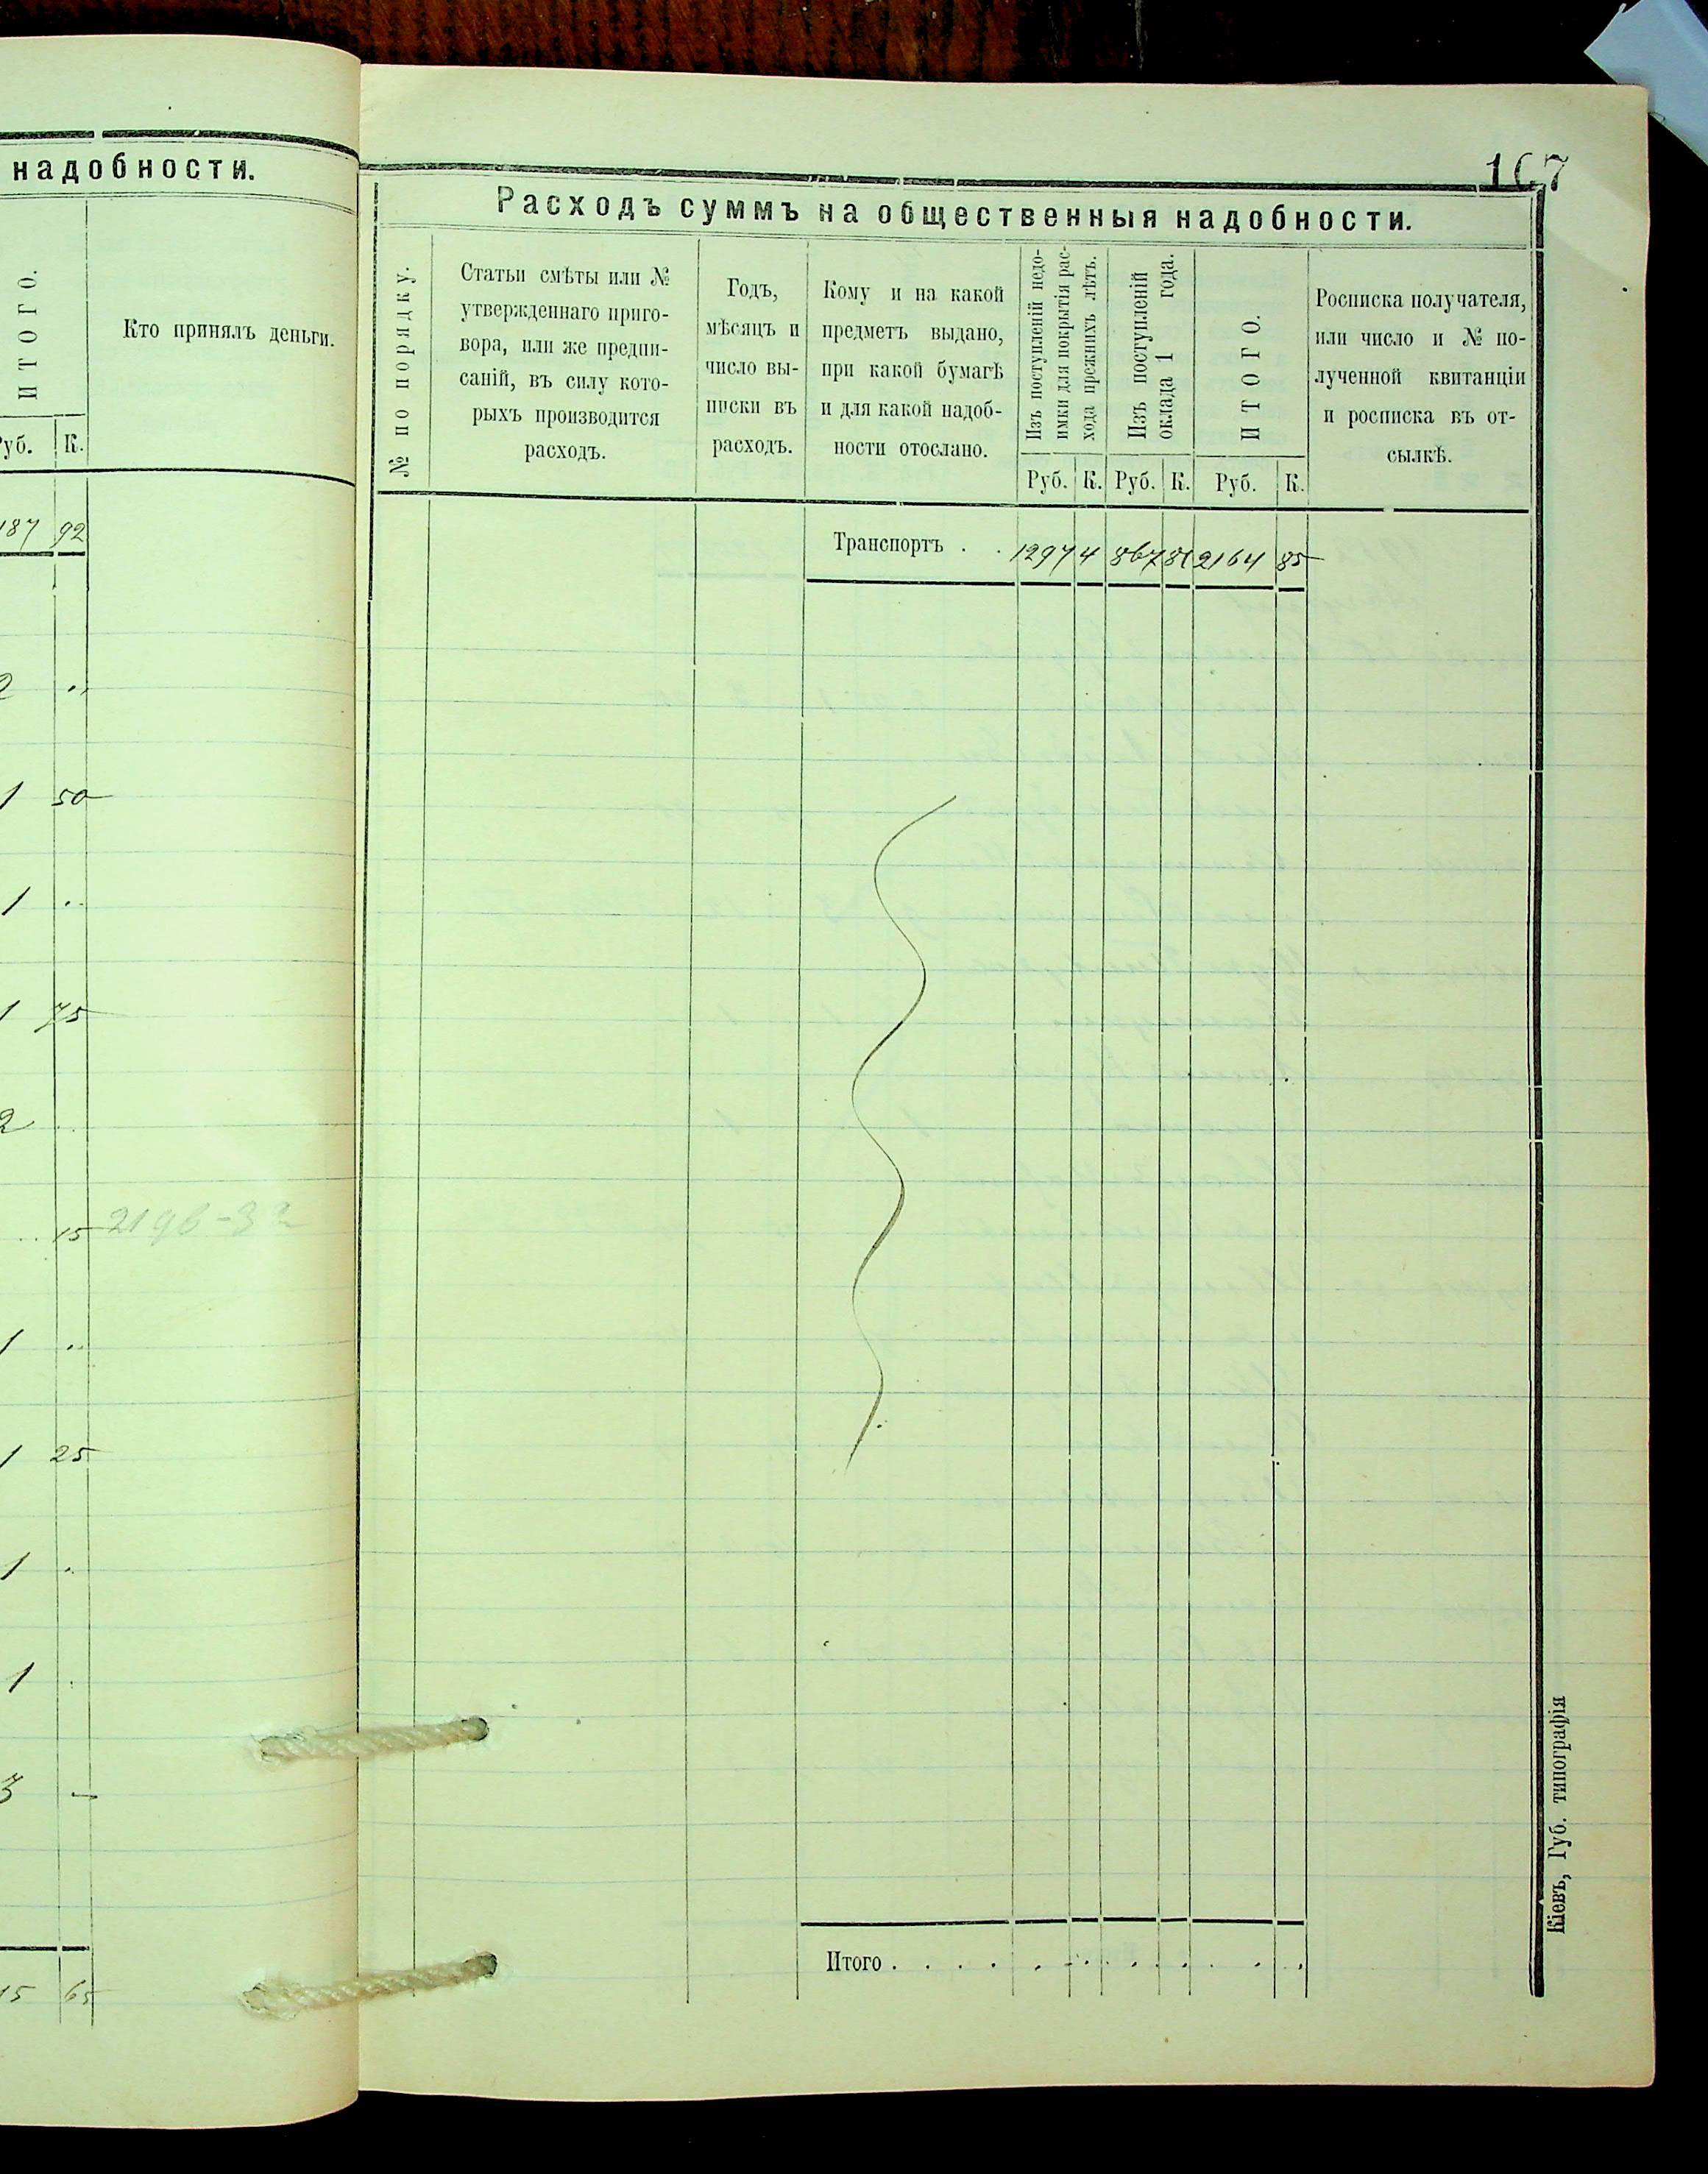 надобности.
ИТОГО.
Кто принялъ деньги.
Руб. К.
187 92
2 "
1 50
1 ..
1 75
2 ..
.. 15 2196-32
1 ..
1 25
1 .
1 .
3 -
15 65
167
Расходъ суммъ на общественныя надобности.
№ по порядку.
Статьи смѣты или №
утвержденнаго приго-
вора, или же предпи-
саній, въ силу кото-
рыхъ производится
расходъ.
Годъ,
мѣсяцъ и
число вы-
писки въ
расходъ.
Кому и на какой
предметъ выдано,
при какой бумагѣ
и для какой надоб-
ности отослано.
Изъ поступленій недо-
имки для покрытія рас-
хода прежнихъ лѣтъ.
Изъ поступленій
оклада 1 года.
ИТОГО.
Росписка получателя,
или число и № по-
лученной квитанціи
и росписка въ от-
сылкѣ.
Руб. К. Руб. К. Руб. К.
Транспортъ . . 1297 4 867 81 2164 85
Итого . . . . . . . . . . . .
Кіевъ, Губ. типографія